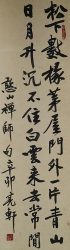 松下數椽茅屋門外一片青山
日月升沉不住白雲來去常閒
憨山禪師句 辛卯 亮軒